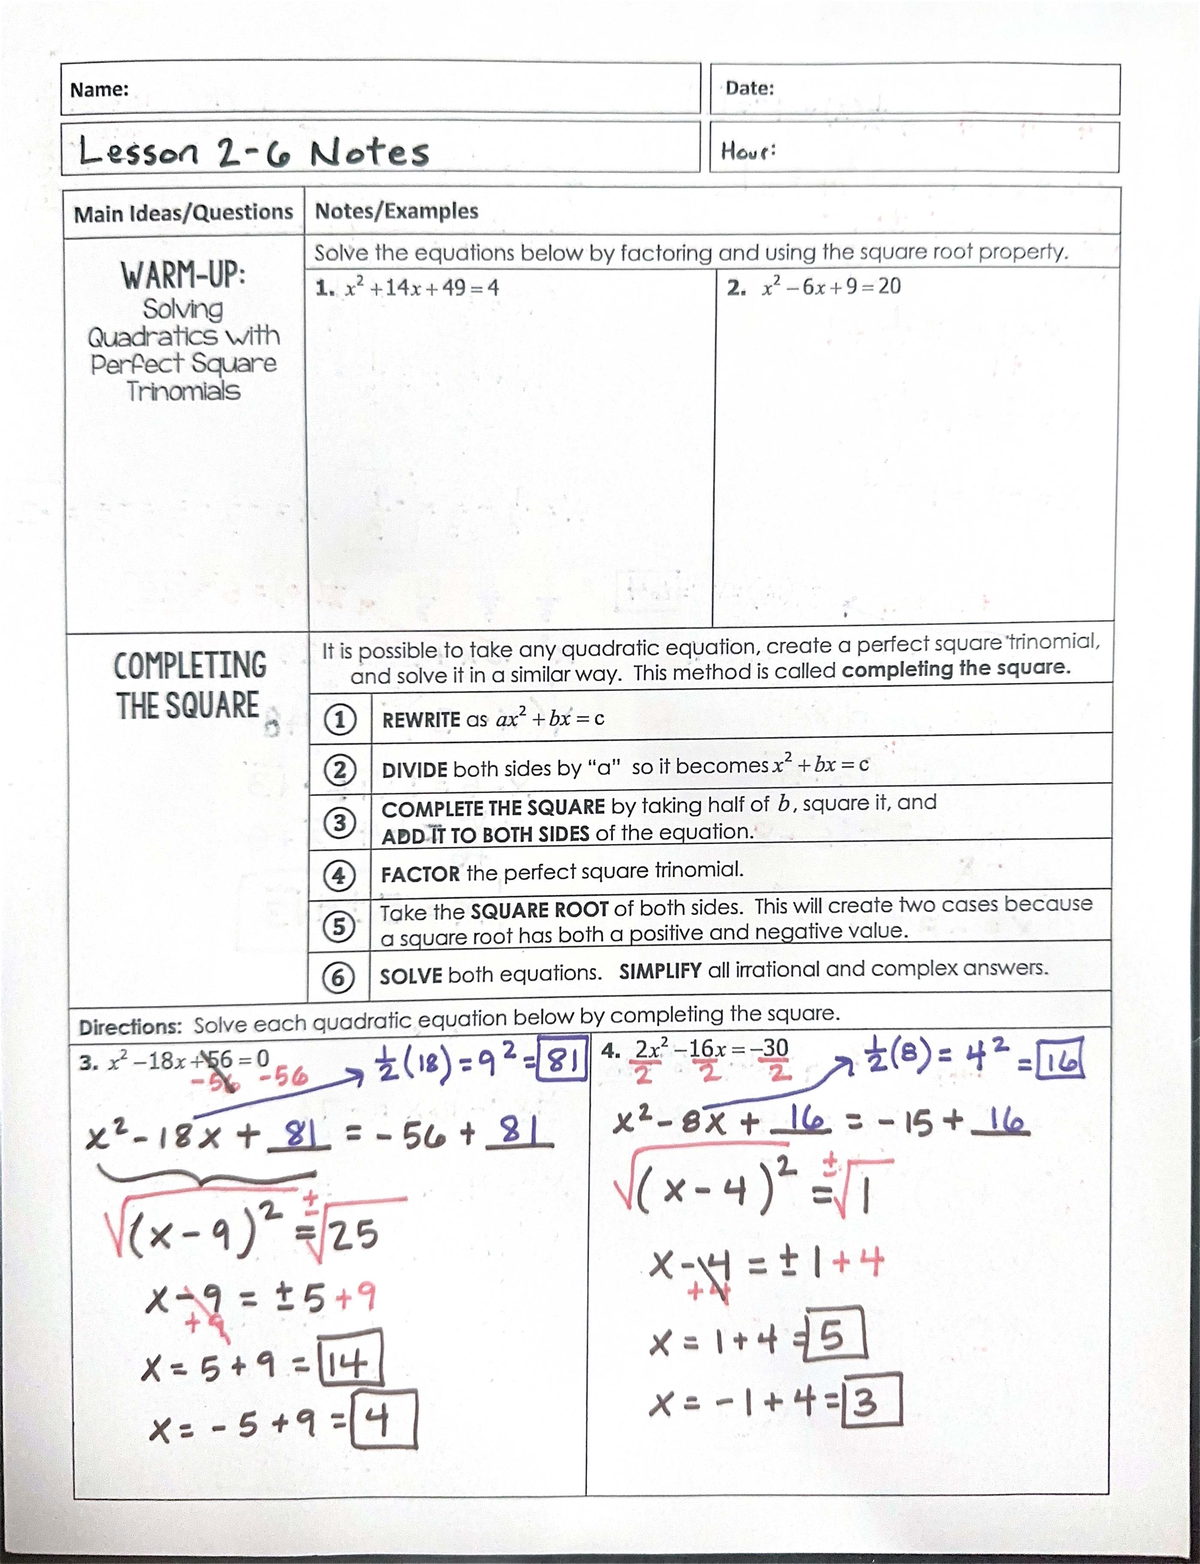 Name:
Date:
Lesson 2-6 Notes
Hour:
Main Ideas/Questions
Notes/Examples
WARM-UP:
Solving
Quadratics with
Perfect Square
Trinomials
Solve the equations below by factoring and using the square root property.
1. x² + 14x + 49 = 4
2. x² − 6x + 9 = 20
COMPLETING
THE SQUARE
It is possible to take any quadratic equation, create a perfect square trinomial,
and solve it in a similar way. This method is called completing the square.
1 REWRITE as ax² + bx = c
2 DIVIDE both sides by "a" so it becomes x² + bx = c
3 COMPLETE THE SQUARE by taking half of b, square it, and
ADD IT TO BOTH SIDES of the equation.
4 FACTOR the perfect square trinomial.
5 Take the SQUARE ROOT of both sides. This will create two cases because
a square root has both a positive and negative value.
6 SOLVE both equations. SIMPLIFY all irrational and complex answers.
Directions: Solve each quadratic equation below by completing the square.
3. x² − 18x + 56 = 0
-56 -56
½(18) = 9² = 81
x² - 18x + 81 = -56 + 81
√(x-9)² = ±√25
x - 9 = ±5 + 9
+9
x = 5 + 9 = 14
x = -5 + 9 = 4
4. 2x² − 16x = −30
2 2 2
½(8) = 4² = 16
x² - 8x + 16 = -15 + 16
√(x-4)² = ±√1
x - 4 = ±1 + 4
+4
x = 1 + 4 = 5
x = -1 + 4 = 3